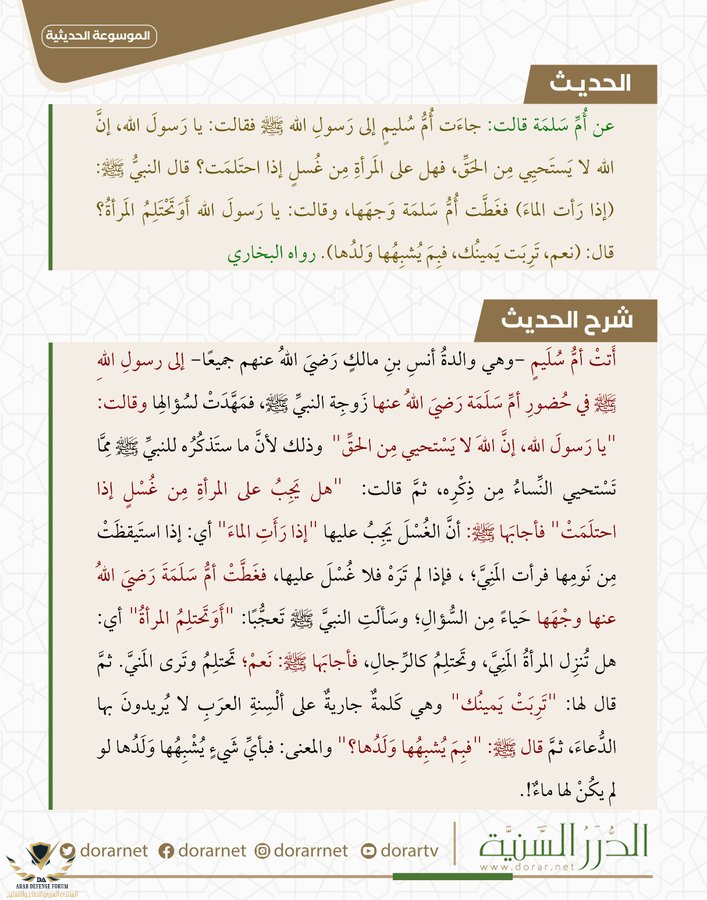 الموسوعة الحديثية
الحديث
عن أُمِّ سَلمَة قالت: جاءَت أُمُّ سُليمٍ إلى رَسولِ الله ﷺ فقالت: يا رَسولَ الله، إنَّ
الله لا يَستَحيِي مِن الحَقِّ، فهل على المَرأةِ مِن غُسلٍ إذا احتَلمَت؟ قال النبيُّ ﷺ:
(إذا رَأت الماءَ) فغَطَّت أُمُّ سَلمَة وَجهَها، وقالت: يا رَسولَ الله أَوَتَحْتَلِمُ المَرأةُ؟
قال: (نعم، تَرِبَت يَمينُك، فبِمَ يُشبِهُها وَلدُها). رواه البخاري
شرح الحديث
أَتتْ أمُّ سُلَيمٍ -وهي والدةُ أنسِ بنِ مالكٍ رَضيَ اللهُ عنهم جميعًا- إلى رسولِ اللهِ
ﷺ في حُضورِ أمِّ سَلَمَة رَضيَ اللهُ عنها زَوجِة النبيِّ ﷺ، فمَهَّدَتْ لسُؤالِها وقالت:
"يا رَسولَ الله، إنَّ اللهَ لا يَسْتحيي مِن الحقِّ" وذلك لأنَّ ما ستَذكُرُه للنبيِّ ﷺ مِمَّا
تَسْتحيي النِّساءُ مِن ذِكْرِه، ثمَّ قالت: "هل يَجِبُ على المرأةِ مِن غُسْلٍ إذا
احتلَمَتْ" فأجابَها ﷺ: أنَّ الغُسْلَ يَجِبُ عليها "إذا رَأَتِ الماءَ" أي: إذا استَيقظَتْ
مِن نَومِها فرأت المَنِيَّ؛ ، فإذا لم تَرَهْ فلا غُسْلَ عليها، فغَطَّتْ أمُّ سَلَمَةَ رَضيَ اللهُ
عنها وجْهَها حَياءً مِن السُّؤالِ؛ وسَألَتِ النبيَّ ﷺ تَعجُّبًا: "أَوَتَحتلِمُ المرأةُ" أي:
هل تُنزِل المرأةُ المَنِيَّ، وتَحتلِمُ كالرِّجالِ، فأجابَها ﷺ: نَعمْ؛ تَحتلِمُ وتَرى المَنيَّ. ثمَّ
قال لها: "تَرِبَتْ يَمينُك" وهي كَلمةٌ جاريةٌ على ألْسِنةِ العرَبِ لا يُريدونَ بها
الدُّعاءَ، ثمَّ قال ﷺ: "فبِمَ يُشبِهُها وَلدُها؟" والمعنى: فبأيِّ شَيءٍ يُشْبِهُها وَلَدُها لو
لم يكُنْ لها ماءٌ!.
الدُّرَرُ السَّنِيَّة
www.dorar.net
dorartv dorarrnet dorarnet dorarnet
DA
ARAB DEFENSE FORUM
المنتدى العربي للدفاع والتسليح